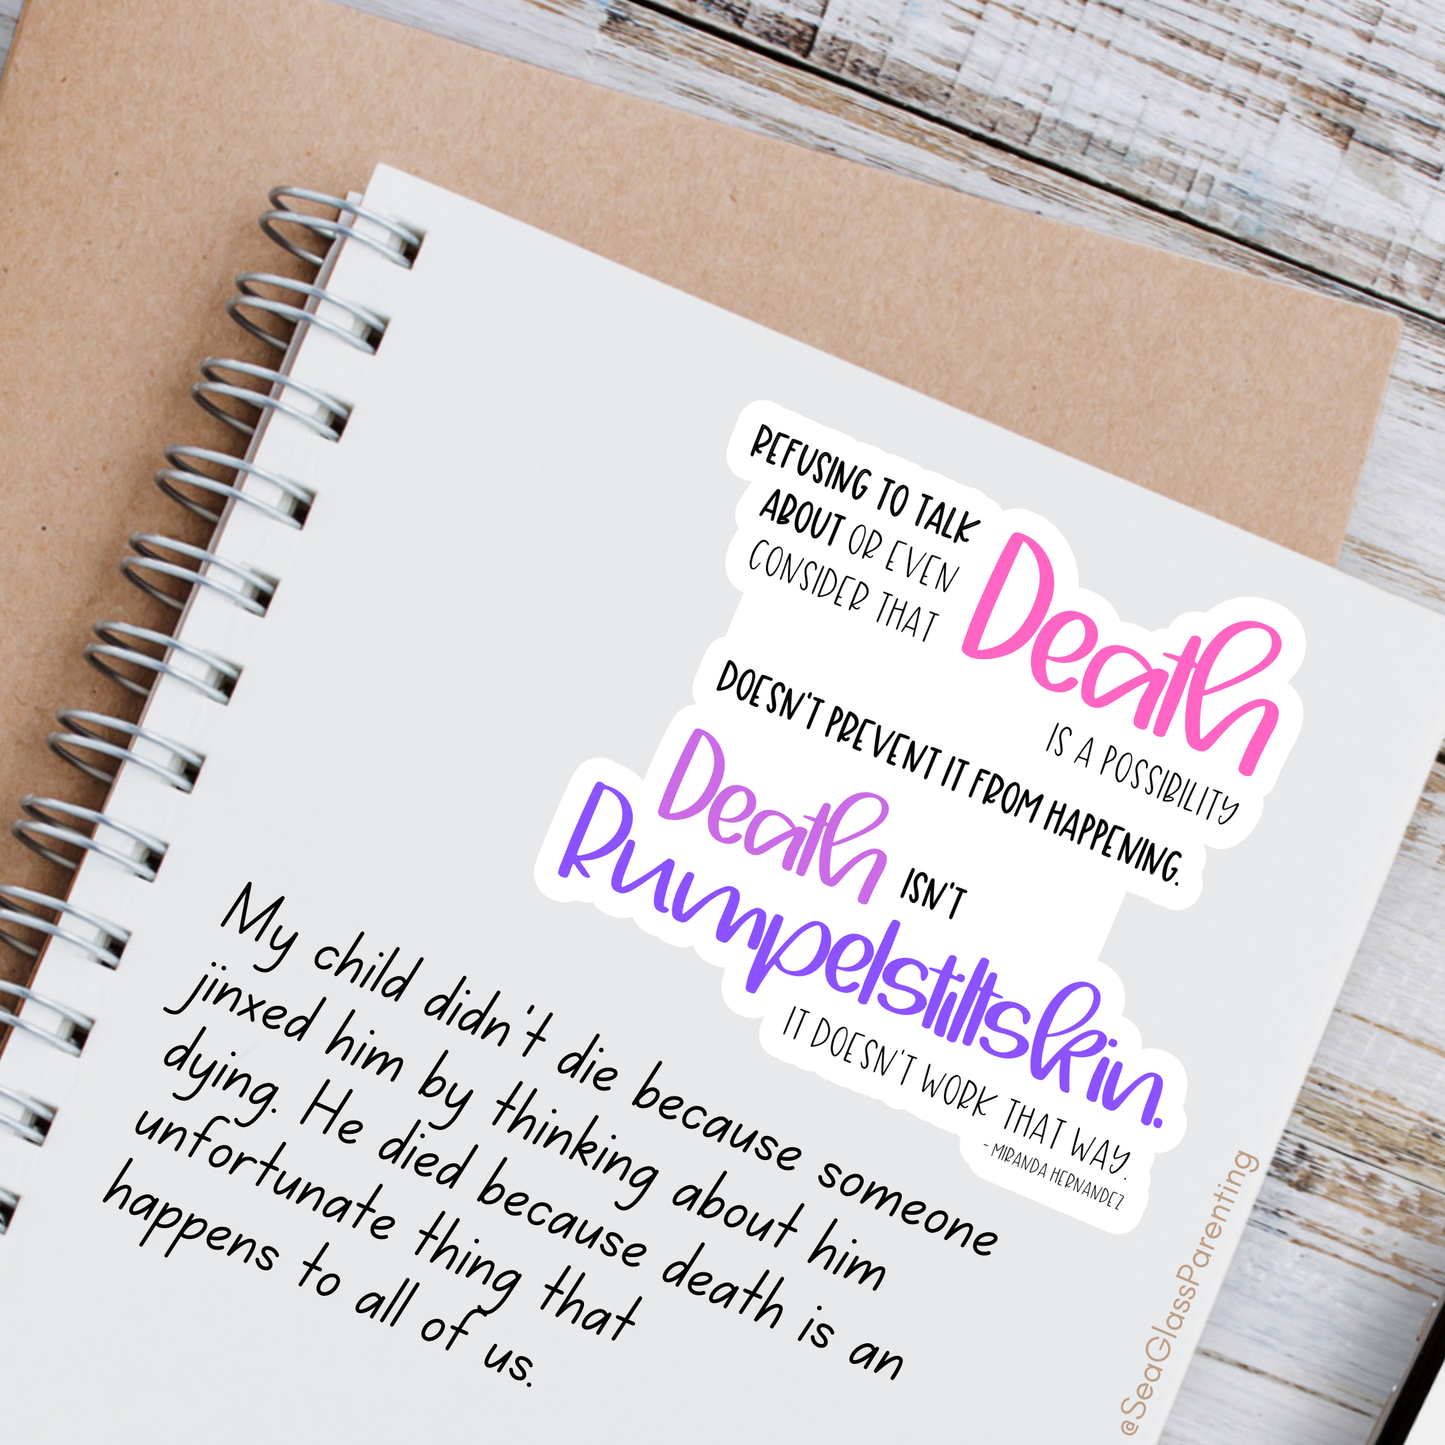 REFUSING TO TALK
ABOUT OR EVEN
CONSIDER THAT
Death
IS A POSSIBILITY
DOESN'T PREVENT IT FROM HAPPENING.
Death ISN'T
Rumpelstiltskin.
IT DOESN'T WORK THAT WAY.
- MIRANDA HERNANDEZ
My child didn't die because someone
jinxed him by thinking about him
dying. He died because death is an
unfortunate thing that
happens to all of us.
@SeaGlassParenting